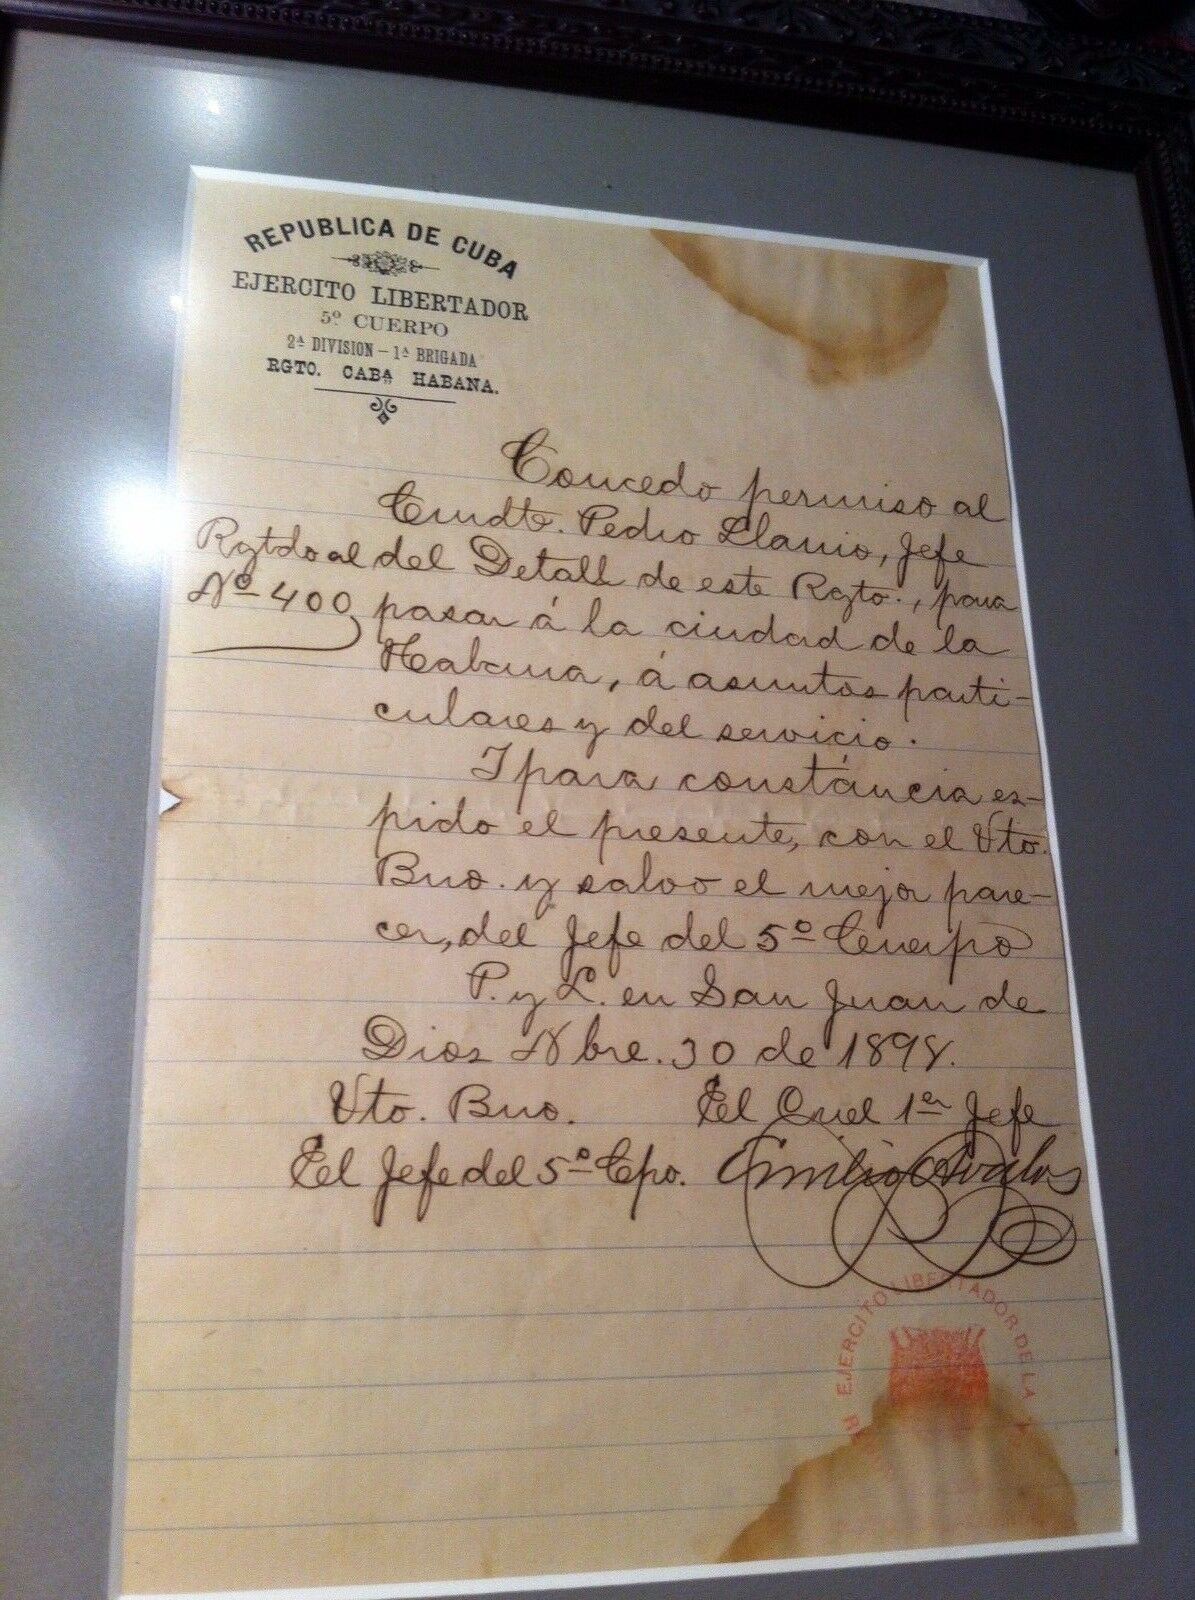 REPUBLICA DE CUBA
EJERCITO LIBERTADOR
5º CUERPO
2ª DIVISION - 1ª BRIGADA
RGTO. CABª HABANA.
Concedo permiso al
Cmdte. Pedro Llanio, Jefe
Rgtdo al
Nº 400
del Detall de este Rgto., para
pasar á la ciudad de la
Habana, á asuntos parti-
culares y del servicio.
I para constáncia es-
pido el presente, con el Vto.
Bno. y salvo el mejor pare-
cer, del Jefe del 5º Cuerpo
P. y L. en San Juan de
Dios Nbre. 30 de 1898.
Vto. Bno.
El Jefe del 5º Cpo.
El Cnel 1er Jefe
Emilio Avalos
EJERCITO LIBERTADOR DE LA